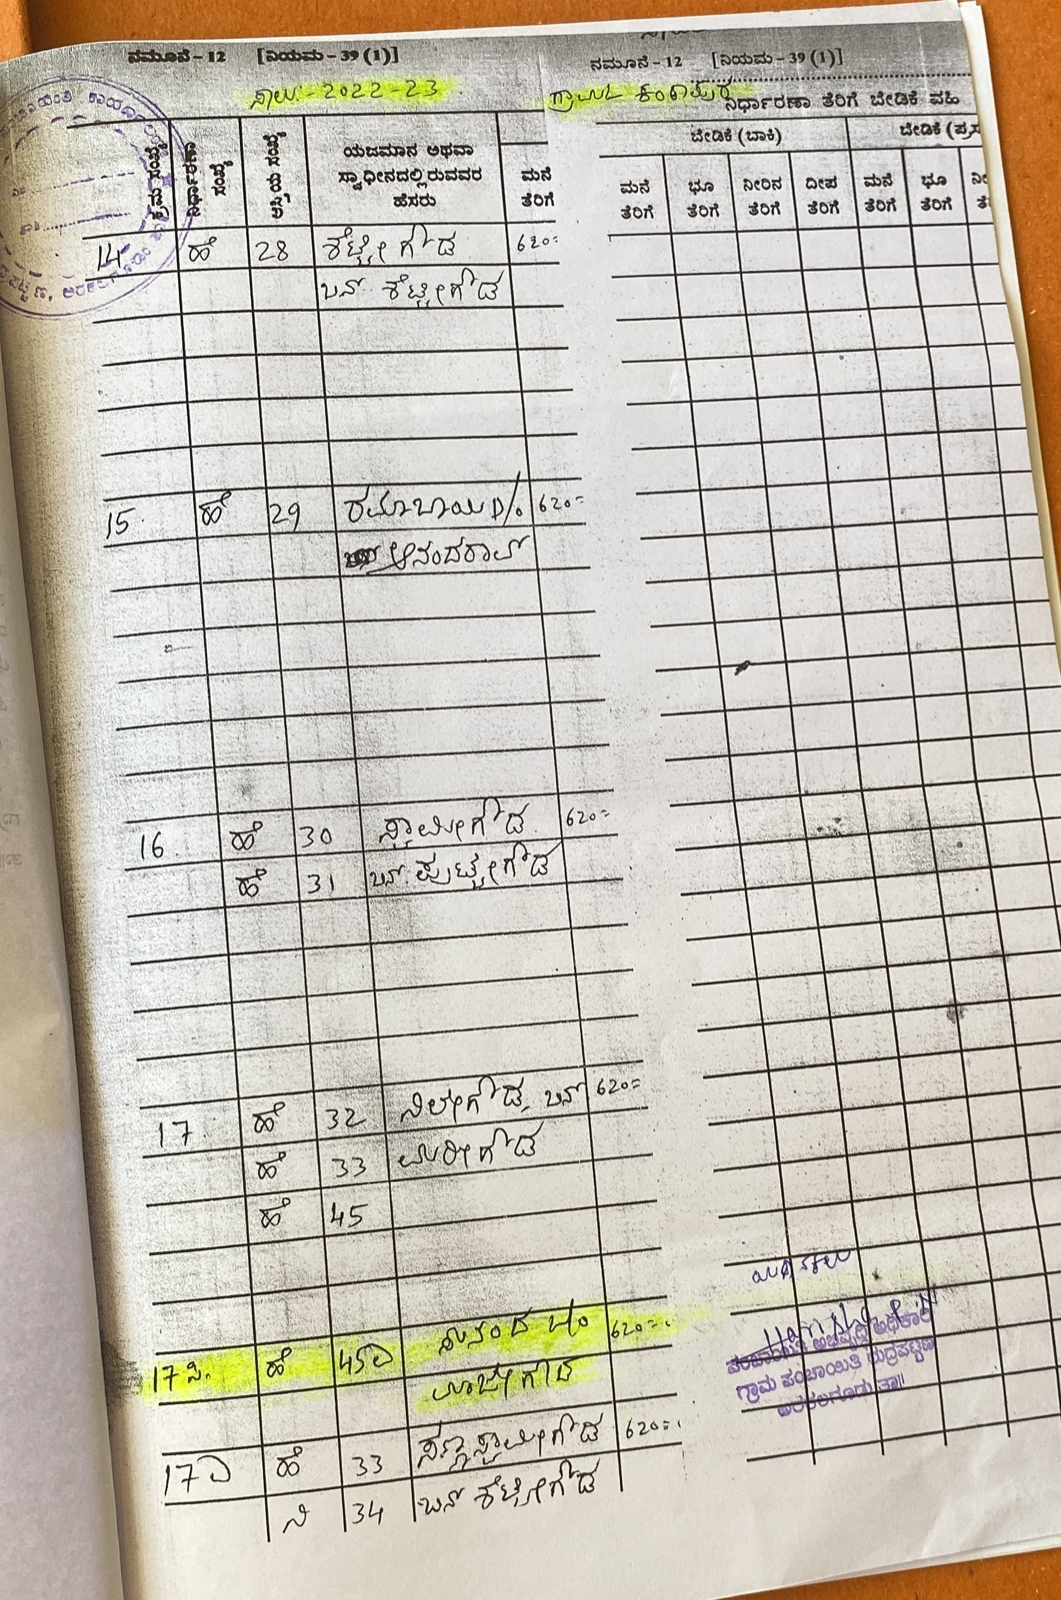 ನಮೂನೆ - 12 [ನಿಯಮ - 39 (1)]
ನಮೂನೆ - 12 [ನಿಯಮ - 39 (1)]
ಸಾಲು :- 2022-23
ಗ್ರಾಮ
ನಿರ್ಧಾರಣಾ ತೆರಿಗೆ ಬೇಡಿಕೆ ವಹಿ
ಕ್ರಮ ಸಂಖ್ಯೆ
ನಿರ್ಧಾರಣಾ ಸಂಖ್ಯೆ
ಆಸ್ತಿಯ ಸಂಖ್ಯೆ
ಯಜಮಾನ ಅಥವಾ
ಸ್ವಾಧೀನದಲ್ಲಿರುವವರ
ಹೆಸರು
ಮನೆ
ತೆರಿಗೆ
ಬೇಡಿಕೆ (ಬಾಕಿ)
ಬೇಡಿಕೆ (ಪ್ರಸ
ಮನೆ ಭೂ ನೀರಿನ ದೀಪ ಮನೆ ಭೂ ನೀ
ತೆರಿಗೆ ತೆರಿಗೆ ತೆರಿಗೆ ತೆರಿಗೆ ತೆರಿಗೆ ತೆರಿಗೆ ತೆ
14 ಹೆ 28 ಶೆಟ್ಟೇಗೌಡ 620=
ಬಿನ್ ಶೆಟ್ಟೇಗೌಡ
15 ಹೆ 29 ರಮಾಬಾಯಿ D/o 620=
ಆನಂದರಾವ್
16 ಹೆ 30 ಸ್ವಾಮೀಗೌಡ 620=
ಹೆ 31 ಬಿನ್ ಪುಟ್ಟೇಗೌಡ
17 ಹೆ 32 ಬಿನ್ 620=
ಹೆ 33
ಹೆ 45
17 ಸಿ. ಹೆ 45 620=
17 ಹೆ 33 ಸಣ್ಣಸ್ವಾಮೀಗೌಡ 620=
ನಿ 34 ಬಿನ್ ಶೆಟ್ಟೇಗೌಡ
ಪಂಚಾಯಿತಿ ಅಭಿವೃದ್ಧಿ ಅಧಿಕಾರಿ
ಗ್ರಾಮ ಪಂಚಾಯಿತಿ ರುದ್ರಪಟ್ಟಣ
ಅರಕಲಗೂಡು ತಾ॥